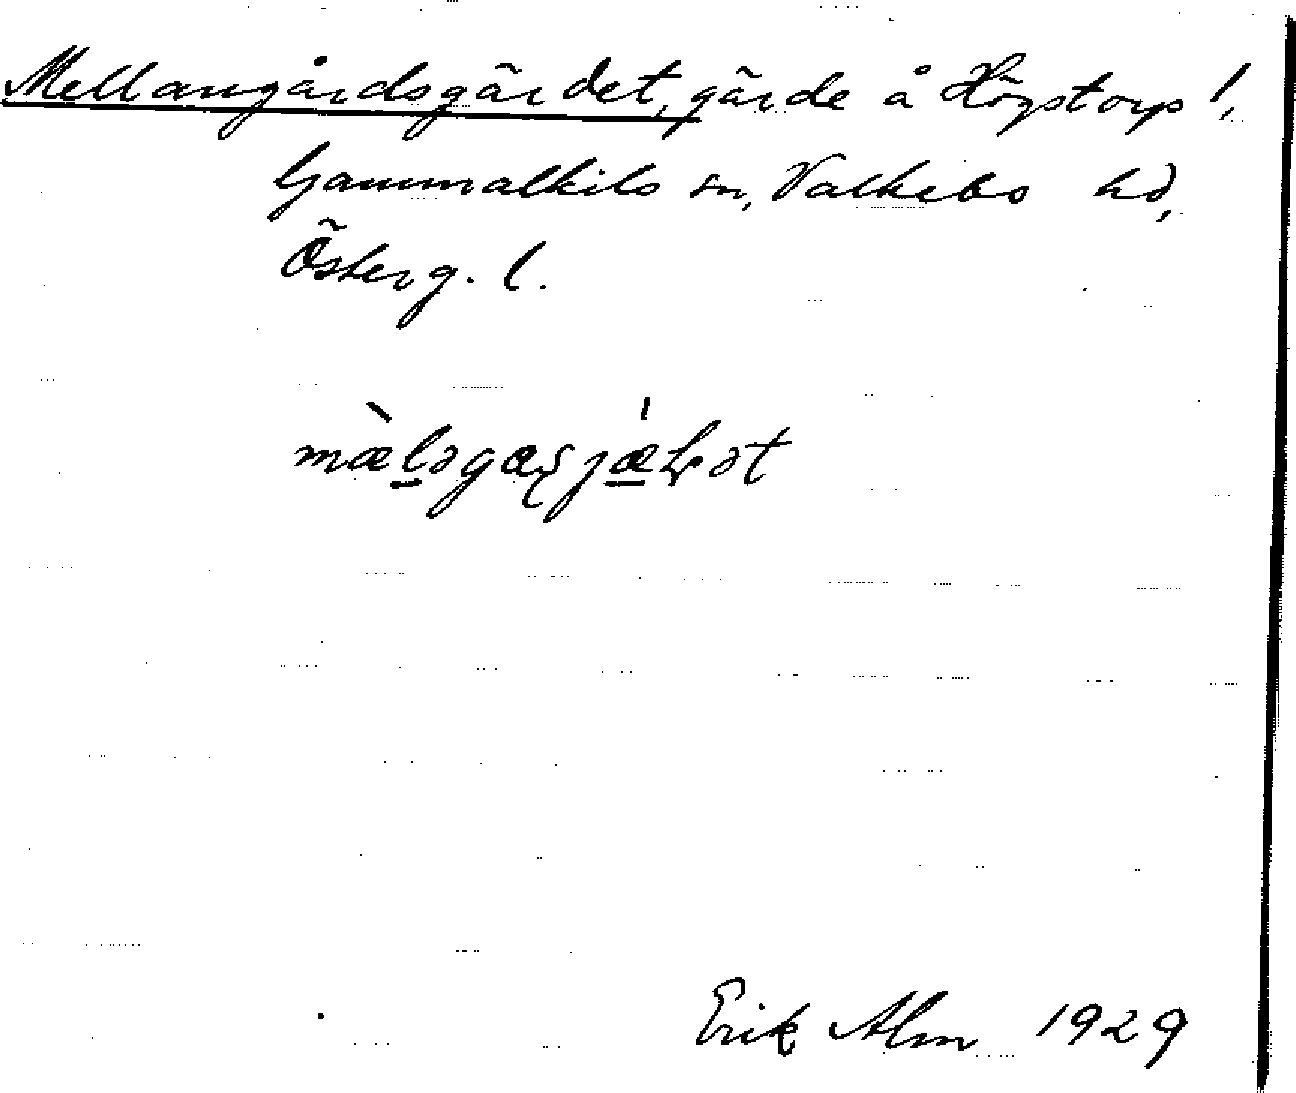 Mellangårdsgärdet, gärde å Högstorp 1,
Gammalkils sn, Valkebo hd,
Österg. l.
Erik Alm 1929